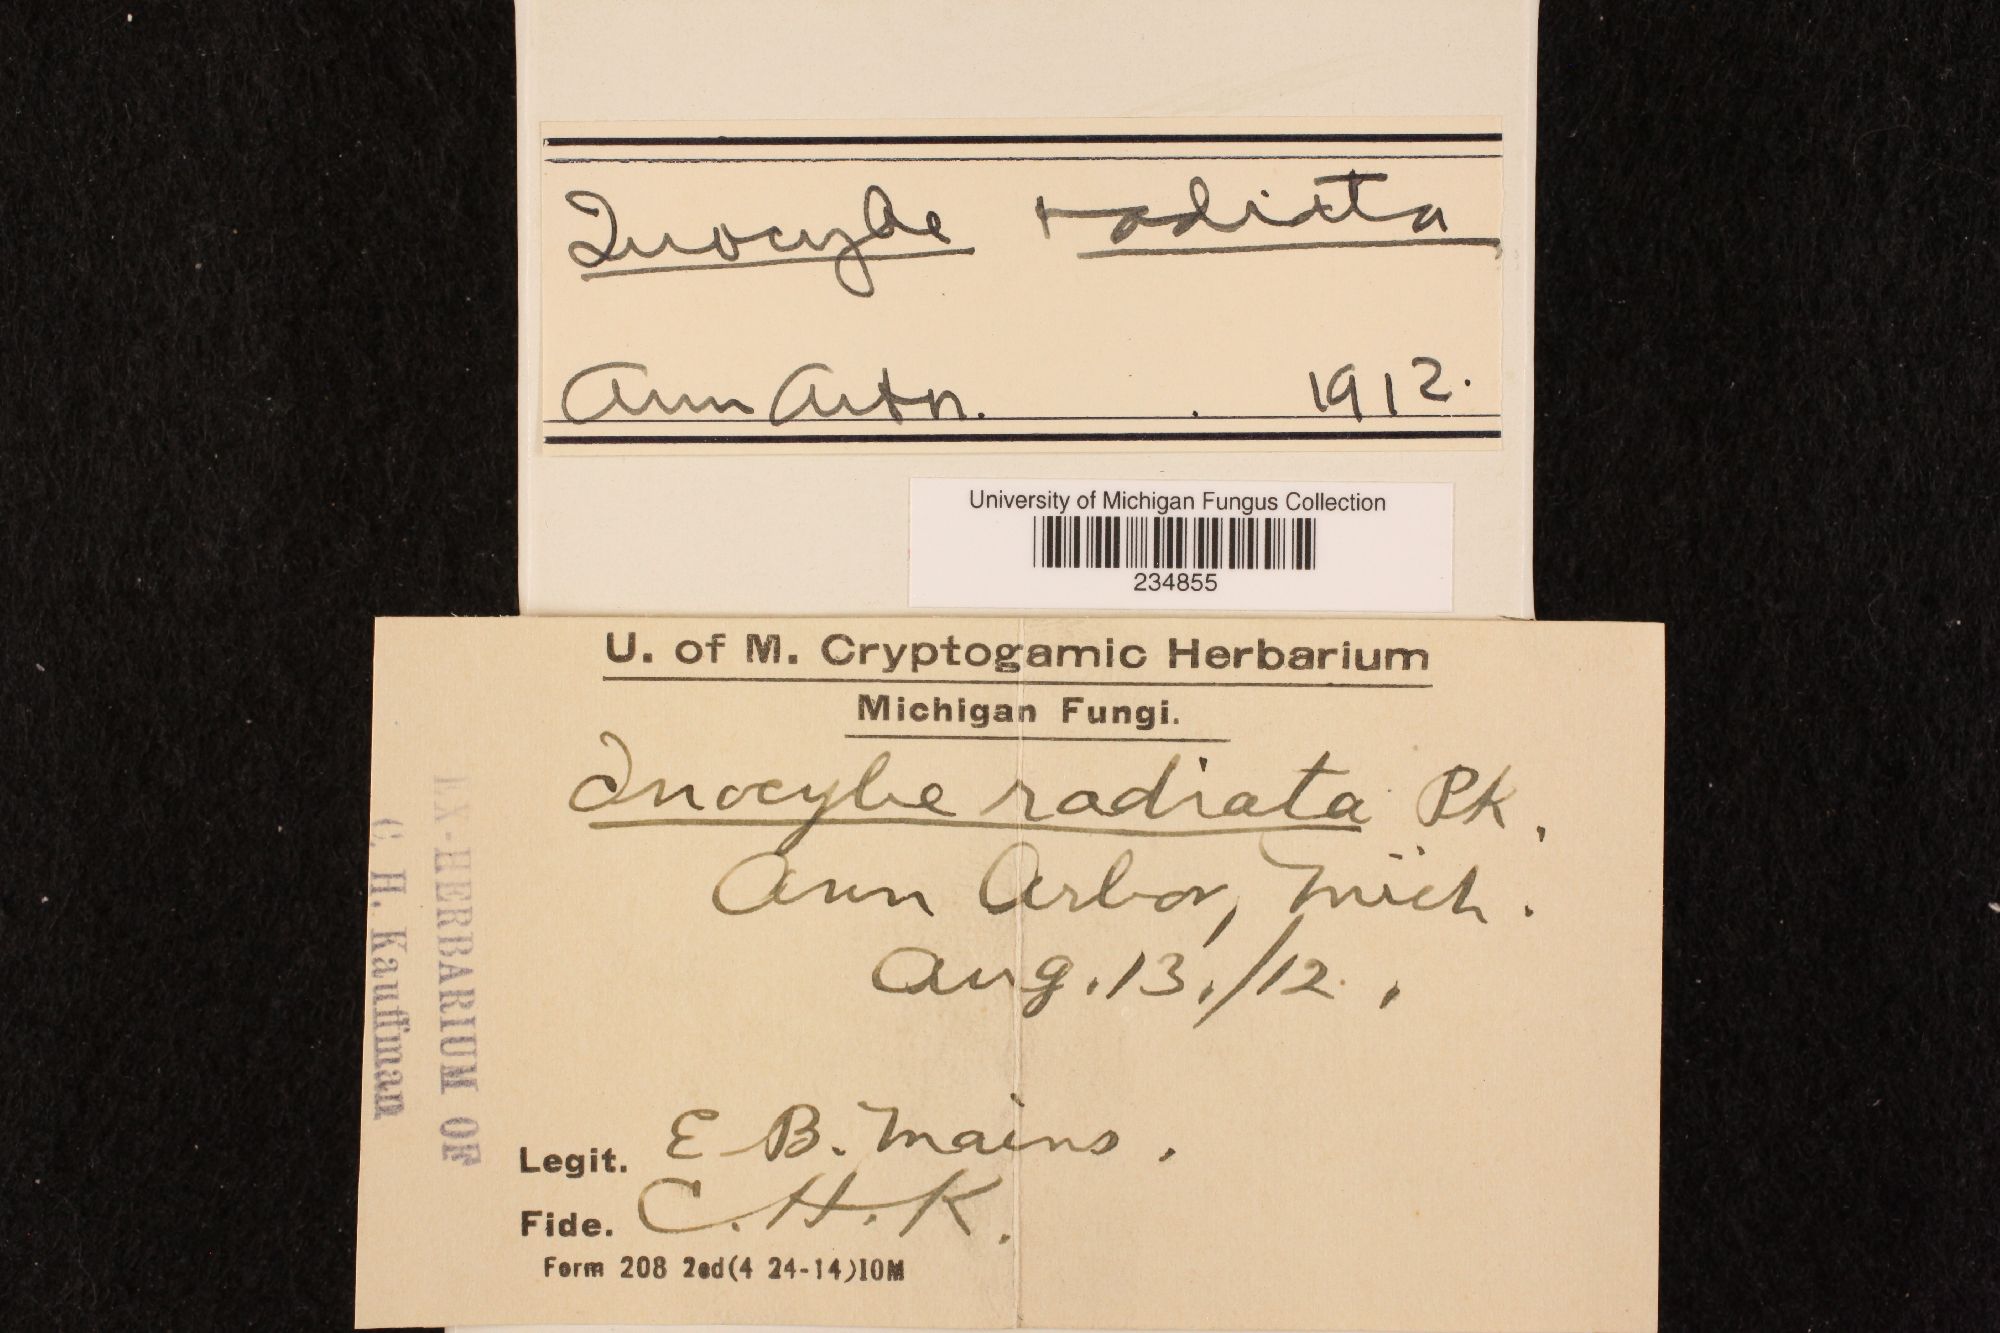 Inocybe radiata
Ann Arbor. . 1912.
University of Michigan Fungus Collection
234855
U. of M. Cryptogamic Herbarium
Michigan Fungi.
Inocybe radiata Pk.
Ann Arbor, Mich.
Aug. 13,/12.
Legit. E B. Mains.
Fide. C. H. K.
Form 208 2ed(4 24-14)10M
EX-HERBARIUM OF
C. H. Kauffman